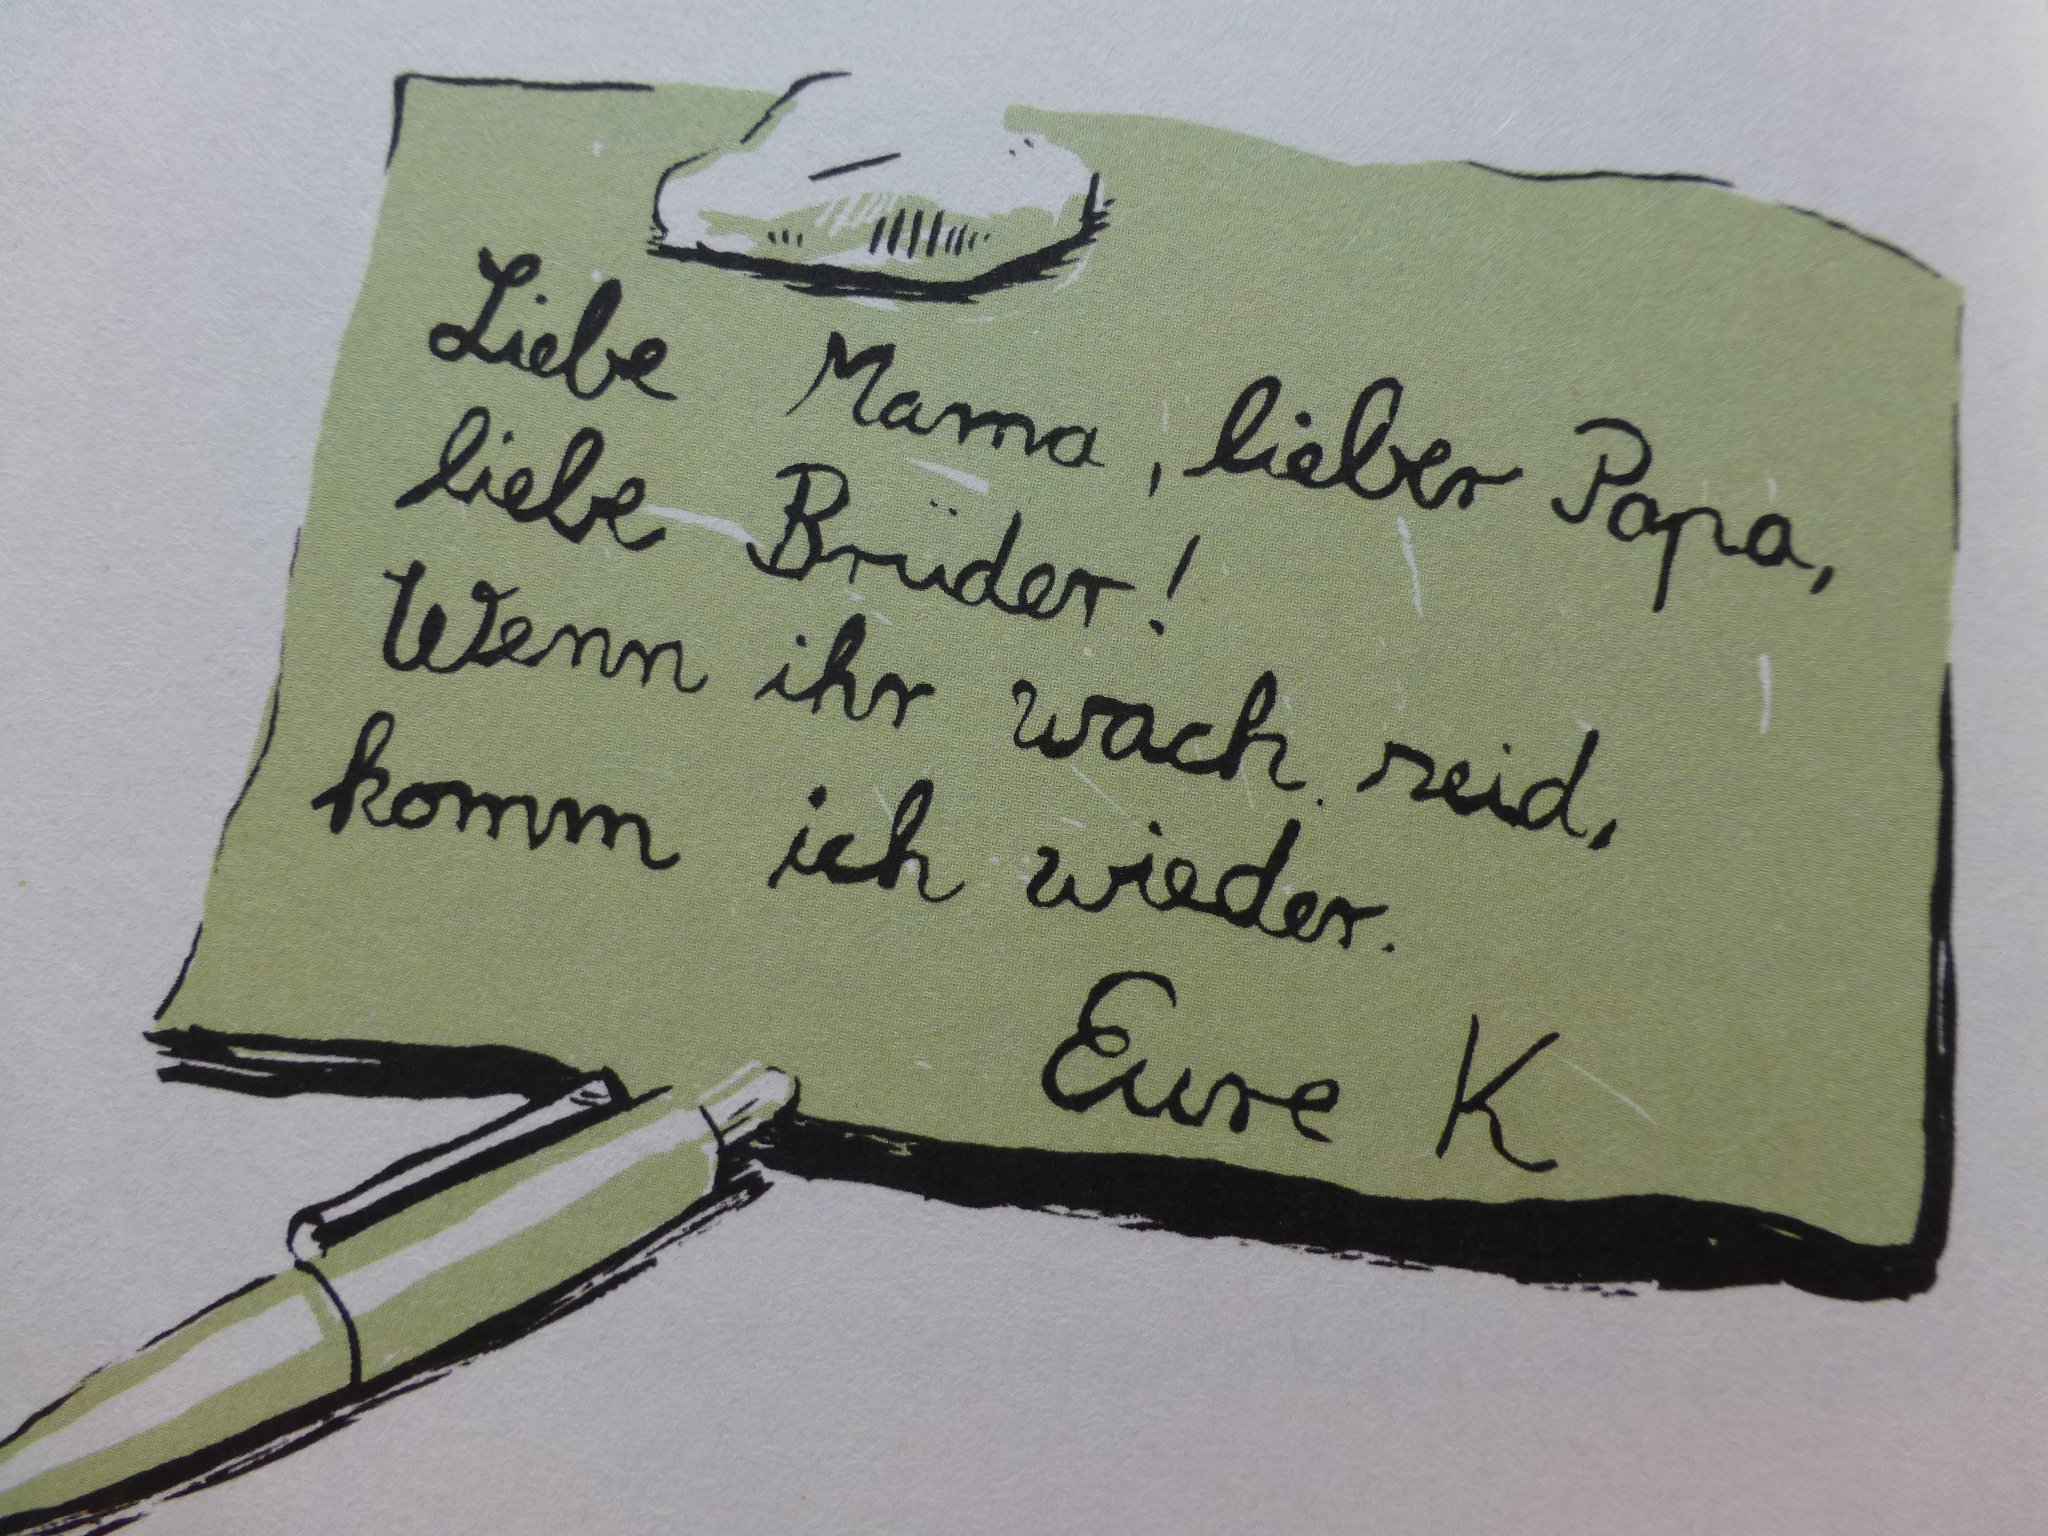 Liebe Mama, lieber Papa,
liebe Brüder!
Wenn ihr wach seid,
komm ich wieder.
Eure K